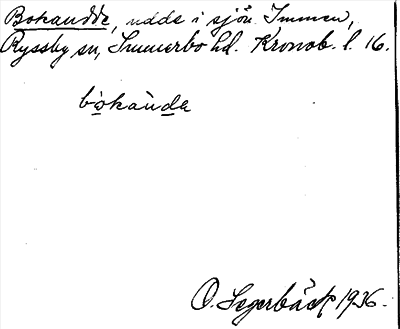 Bokaudde, udde i sjön Immen,
Ryssby sn, Sunnerbo hd. Kronob. l. 16.
bòkàuda
O. Segerbäck 1936.